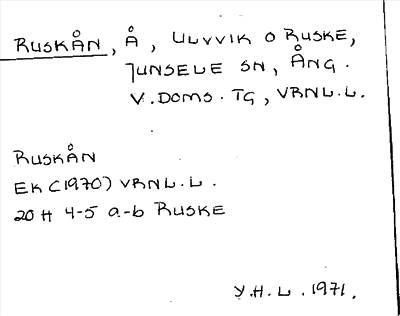 RUSKÅN, Å, ULVVIK O RUSKE,
JUNSELE SN, ÅNG.
V.DOMS.TG, VBNL.L.
RUSKÅN
EK (1970) VBNL.L.
20 H 4-5 a-b RUSKE
Y.H.L. 1971.